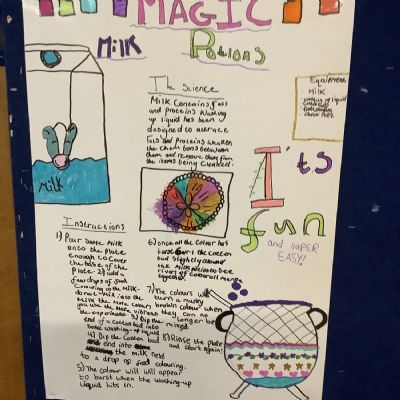 MAGIC
Milk
Potions
The Science
Milk contains fats
and proteins washing
up liquid has been
designed to attrace
fats and proteins weaken
the chem bons between
them and remove them from
the items being cleaned.
Equipment
• Milk
washing up liquid
It's
fun
and super
EASY!
MILK
Instructions
1) Pour some milk
onto the plate
enough to cover
the base of the
plate. 2) add a
few drops of food
colouring to the milk-
do not mix into the
Milk the more colours
you use the more vibrent
the experiment 3) Dip the
end of a cotton bud into
some washing-up liquid
4) Dip the cotton bud
end into
the milk next
to a drop of food colouring.
5) The colour will appear
to burst when the washing-up
liquid hits in.
6) once all the colour has
burst the cotton
bud slightly around
the milk
rivers of colour all merge
together
7) The colours will
turn a murky
brown colour when
they can no
longer be
mixed.
8) Rinse the plate
and start again!